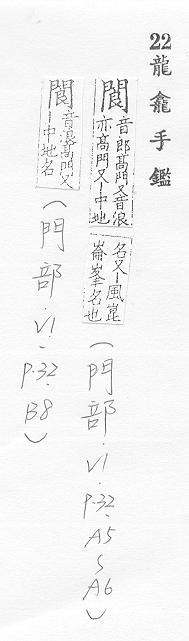 22 龍龕手鑑
閬 音郎髙門又音浪
亦髙門又一中地
名又一風崑
崙峯名也
(門部.V1.P.32.A5~A6)
閬 音浪髙門又
一中地名
(門部.V1-P.32.B8)